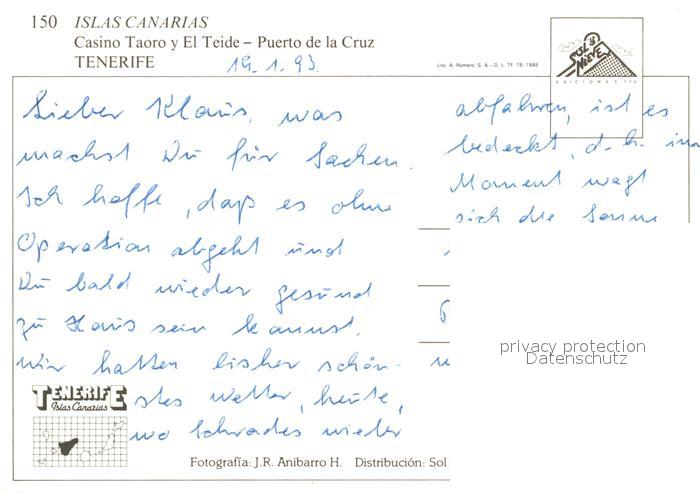 150 ISLAS CANARIAS
Casino Taoro y El Teide – Puerto de la Cruz
TENERIFE
19.1.93.
Lito. A. Romero, S. A. - D. L. TF. 78-1988
SOL Y NIEVE
EDICIONES
Lieber Klaus, was
machst Du für Sachen.
Ich hoffe, daß es ohne
Operation abgeht und
Du bald wieder gesund
zu Haus sein kannst.
Wir hatten bisher schön-
stes Wetter, heute,
wo Schrades wieder
abfahren, ist es
bedeckt, d.h. im
Moment wagt
sich die Sonne
privacy protection
Datenschutz
TENERIFE
Islas Canarias
Fotografía: J.R. Anibarro H. Distribución: Sol